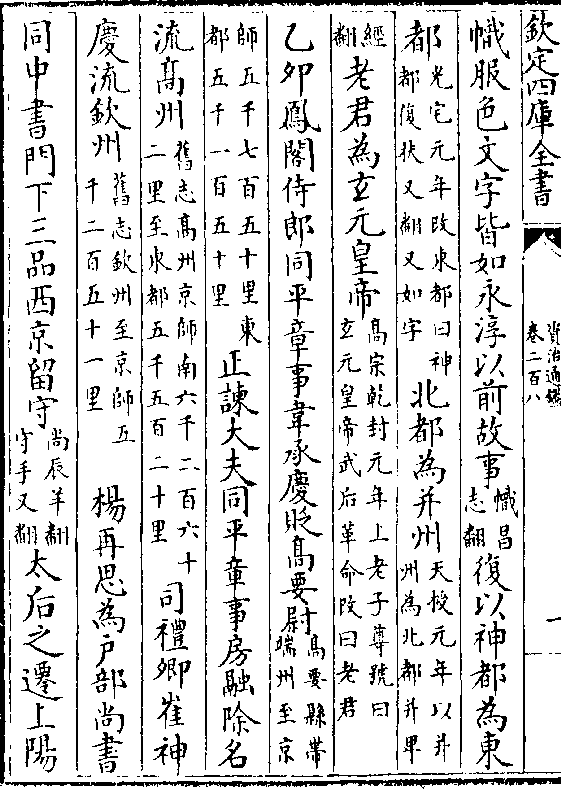 欽定四庫全書
資治通鑑
卷二百八
一
幟服色文字皆如永淳以前故事幟昌志翻復以神都為東
都光宅元年改東都曰神都復扶又翻又如字北都為并州天授元年以并州為北都并卑
經翻老君為玄元皇帝高宗乾封元年上老子尊號曰玄元皇帝武后革命改曰老君
乙卯鳳閣侍郎同平章事韋承慶貶髙要尉高要縣帶端州至京
師五千七百五十里東都五千一百五十里正諫大夫同平章事房融除名
流髙州舊志髙州京師南六千二百六十二里至東都五千五百二十里司禮卿崔神
慶流欽州舊志欽州至京師五千二百五十一里楊再思為户部尚書
同中書門下三品西京留守尚辰羊翻守手又翻太后之遷上陽